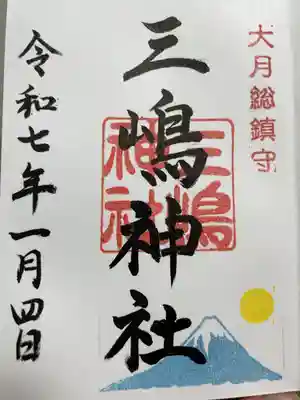 大月総鎮守
三嶋神社
三嶋神社
令和七年一月四日